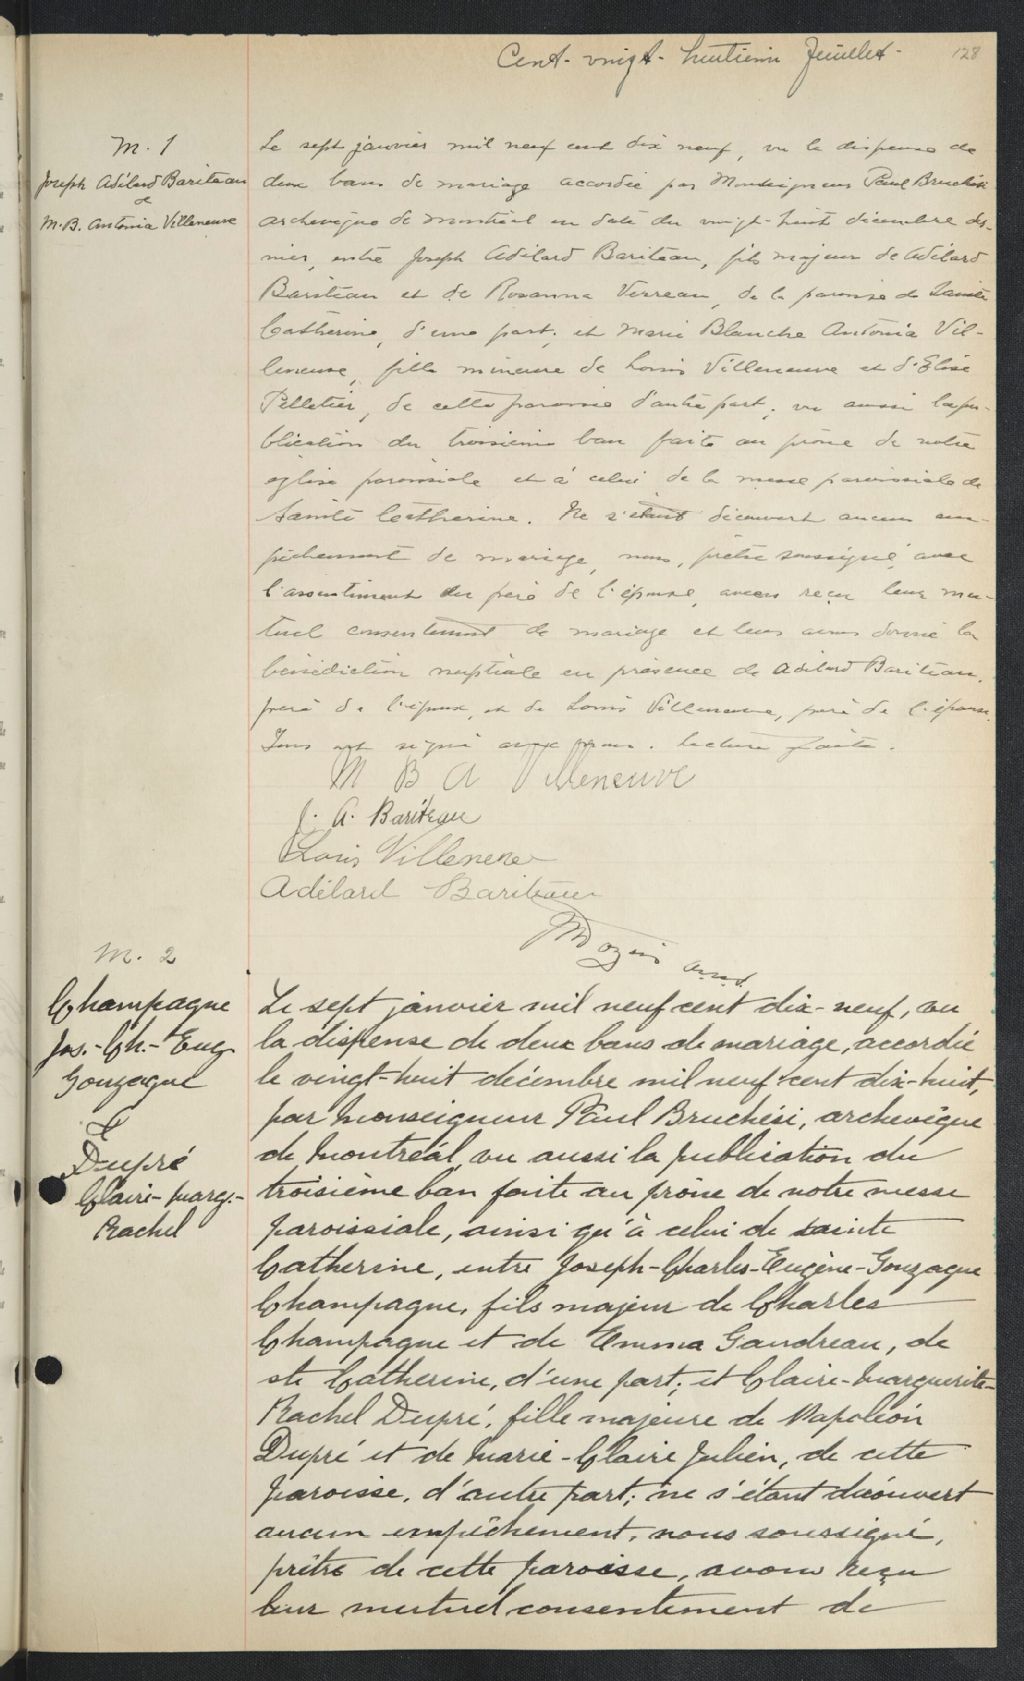 Cent-vingt-huitième feuillet- 128
M. 1
Joseph Adélard Bariteau
&
M.B. Antonia Villeneuve
Le sept janvier mil neuf cent dix neuf, vu la dispense de
deux bans de mariage accordée par Monseigneur Paul Bruchési
archevêque de Montréal en date du vingt-huit décembre der-
nier, entre Joseph Adélard Bariteau, fils majeur de Adélard
Bariteau et de Rosanna Verreau, de la paroisse de Sainte
Catherine, d'une part; et Marie Blanche Antonia Vil-
leneuve, fille mineure de Louis Villeneuve et d'Elise
Pelletier, de cette paroisse d'autre part; vu aussi la pu-
blication du troisième ban faite au prône de notre
église paroissiale et à celui de la messe paroissiale de
Sainte Catherine. Ne s'étant découvert aucun em-
pêchement de mariage, nous, prêtre soussigné, avec
l'assentiment du père de l'épouse, avons reçu leur mu-
tuel consentement de mariage et leur avons donné la
bénédiction nuptiale en présence de Adélard Bariteau,
père de l'époux, et de Louis Villeneuve, père de l'épouse.
Tous ont signé avec nous. Lecture faite.
M B A Villeneuve
J. A. Bariteau
Louis Villeneuve
Adélard Bariteau
M. 2
Champagne
Jos.-Ch.-Eug
Gonzague
&
Dupré
Claire-Marg.-
Rachel
Le sept janvier mil neuf cent dix-neuf, vu
la dispense de deux bans de mariage, accordée
le vingt-huit décembre mil neuf cent dix-huit,
par Monseigneur Paul Bruchési, archevêque
de Montréal, vu aussi la publication du
troisième ban faite au prône de notre messe
paroissiale, ainsi qu'à celui de sainte
Catherine, entre Joseph-Charles-Eugène-Gonzague
Champagne, fils majeur de Charles
Champagne et de Emma Gaudreau, de
ste Catherine, d'une part; et Claire-Marguerite-
Rachel Dupré, fille majeure de Napoléon
Dupré et de Marie-Claire Julien, de cette
paroisse, d'autre part; ne s'étant découvert
aucun empêchement, nous soussigné,
prêtre de cette paroisse, avons reçu
leur mutuel consentement de